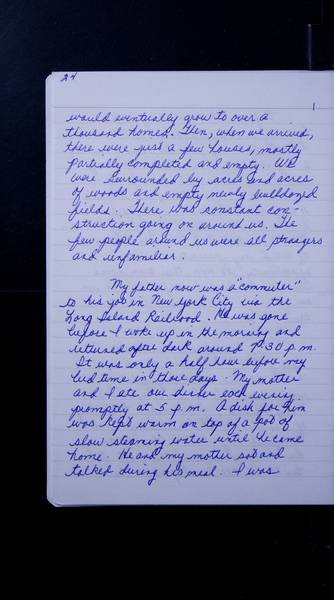 24
would eventually grow to over a
thousand homes. Then, when we arrived,
there were just a few houses, mostly
partially completed and empty. We
were surrounded by acres and acres
of woods and empty newly bulldozed
fields. There was constant con-
struction going on around us. The
few people around us were all strangers
and unfamiliar.
My father now was a "commuter"
to his job in New York City via the
Long Island Railroad. He was gone
before I woke up in the morning and
returned after dark around 7:30 p.m.
It was only a half hour before my
bed time in those days. My mother
and I ate our dinner each evening
promptly at 5 p.m. A dish for him
was kept warm on top of a pot of
slow steaming water until he came
home. He and my mother sat and
talked during his meal. I was